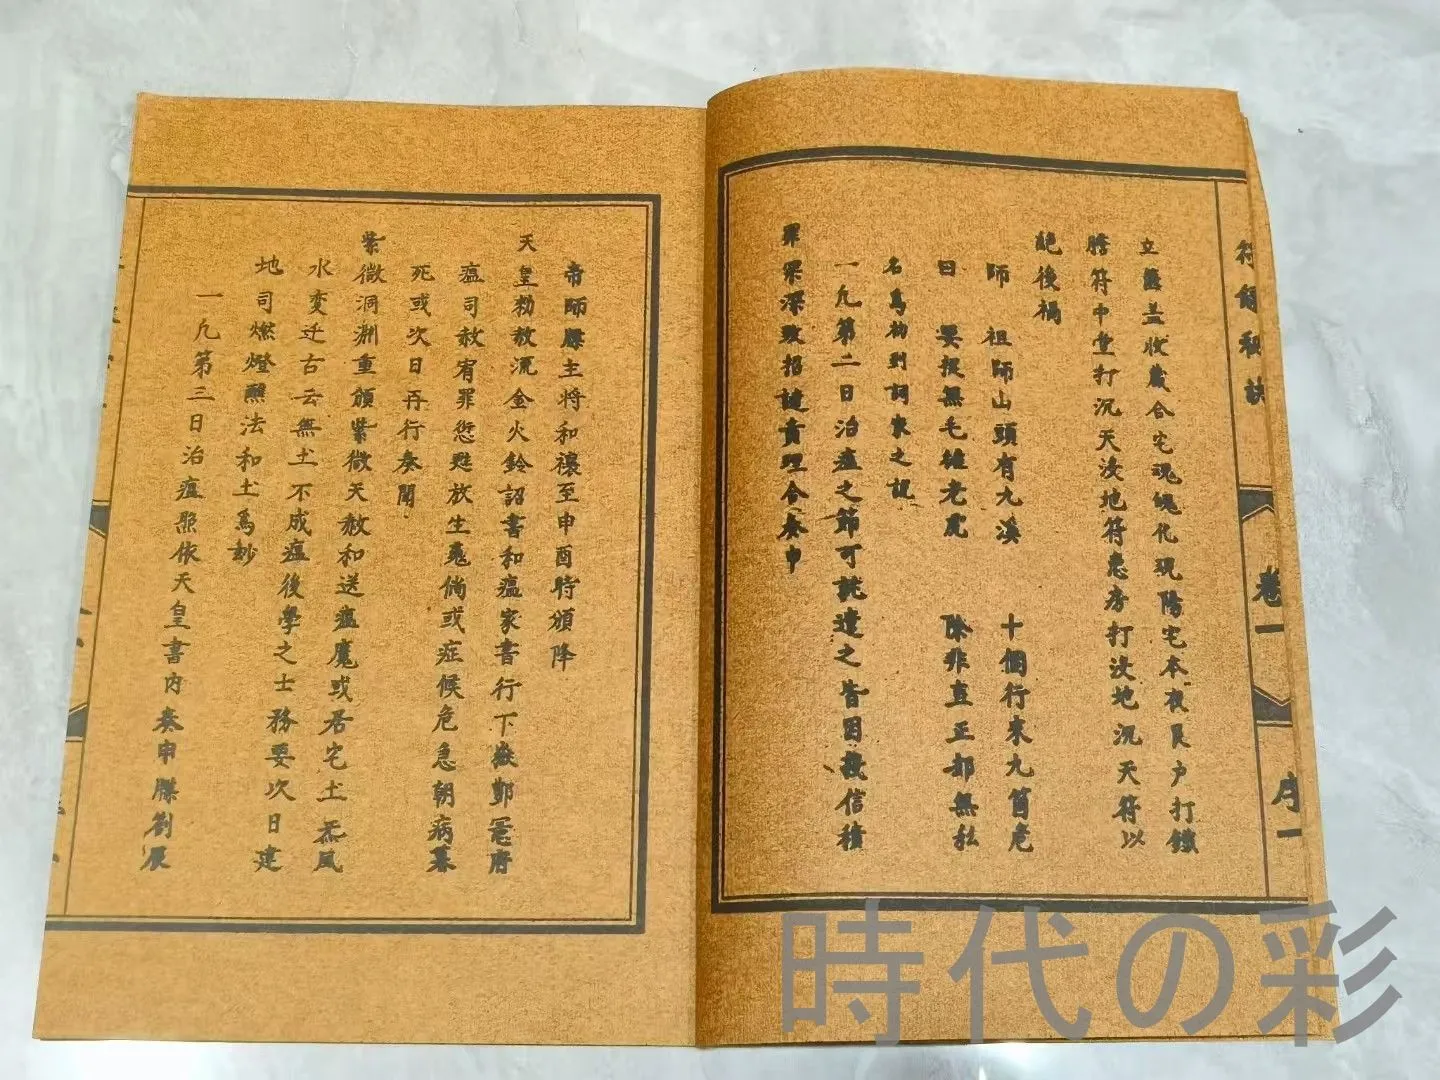 符師秘訣 卷一 序一
立盤盖收藏合宅魂魄化現陽宅本夜良户打鐵
牌符中堂打沉天没地符患房打没地沉天符以
絶後禍
師 祖師山頭有九溪 十個行來九箇危
曰 要捉無毛雄老虎 除非直正却無私
名為初到詞家之記
一凡第二日治瘟之節可誂遣之皆因攘信積
罪深致招譴責理合奏申
帝師牒主將和禳至申酉時頒降
天皇勑赦流金火鈴詔書和瘟家書行下嶽酆冤府
瘟司赦宥罪愆甦放生魂倘或症候危急朝病暮
死或次日再行奏聞
紫微洞渊重頒紫微天赦和送瘟魔或居宅土炁風
水变迁古云無土不成瘟後學之士務要次日建
地司燃燈醮法和土爲妙
一凡第三日治瘟照依天皇書内奏申牒劄辰
時代の彩